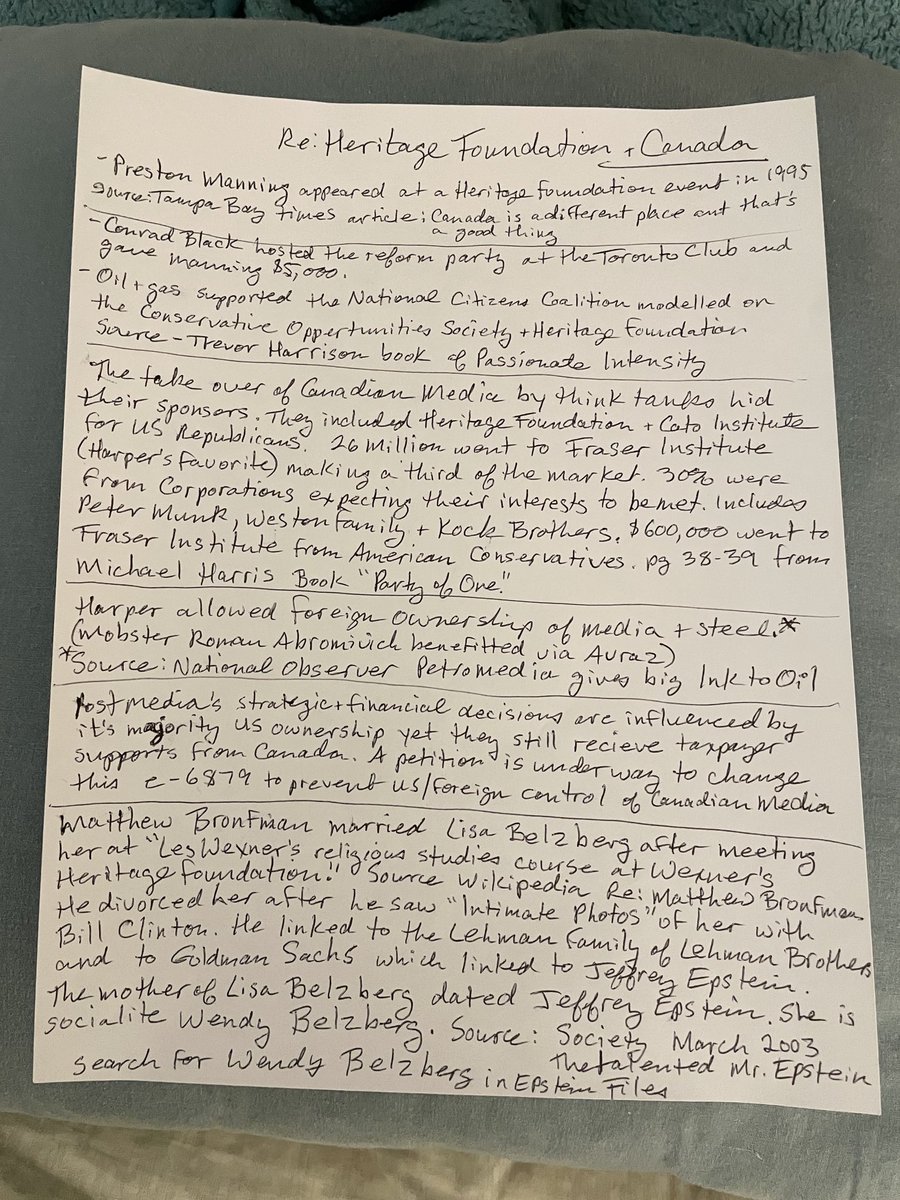 Re: Heritage Foundation + Canada
- Preston Manning appeared at a Heritage Foundation event in 1995
Source: Tampa Bay times article; Canada is a different place and that's
a good thing
- Conrad Black hosted the reform party at the Toronto Club and
gave Manning $5,000.
- Oil + gas supported the National Citizens Coalition modelled on
the Conservative Oppertunities Society + Heritage Foundation
Source - Trevor Harrison book of Passionate Intensity
The take over of Canadian Media by think tanks hid
their sponsors. They included Heritage Foundation + Cato Institute
for US Republicans. 26 Million went to Fraser Institute
(Harper's favorite) making a third of the market. 30% were
from Corporations expecting their interests to be met. Includes
Peter Munk, Weston Family + Kock Brothers. $600,000 went to
Fraser Institute from American Conservatives. pg 38-39 from
Michael Harris Book "Party of One."
Harper allowed foreign ownership of media + steel.*
(Mobster Roman Abromivich benefitted via Avraz)
*Source: National Observer Petromedia gives big Ink to Oil
Postmedia's strategic + financial decisions are influenced by
it's majority US ownership yet they still recieve taxpayer
supports from Canada. A petition is underway to change
this e-6879 to prevent US/foreign control of Canadian Media
Matthew Bronfman married Lisa Belzberg after meeting
her at "Les Wexner's religious studies course at Wexner's
Heritage foundation." Source Wikipedia Re: Matthew Bronfman
He divorced her after he saw "Intimate Photos" of her with
Bill Clinton. He linked to the Lehman family of Lehman Brothers
and to Goldman Sachs which linked to Jeffrey Epstein.
The mother of Lisa Belzberg dated Jeffrey Epstein. She is
socialite Wendy Belzberg. Source: Society March 2003
The talented Mr. Epstein
search for Wendy Belzberg in Epstein Files